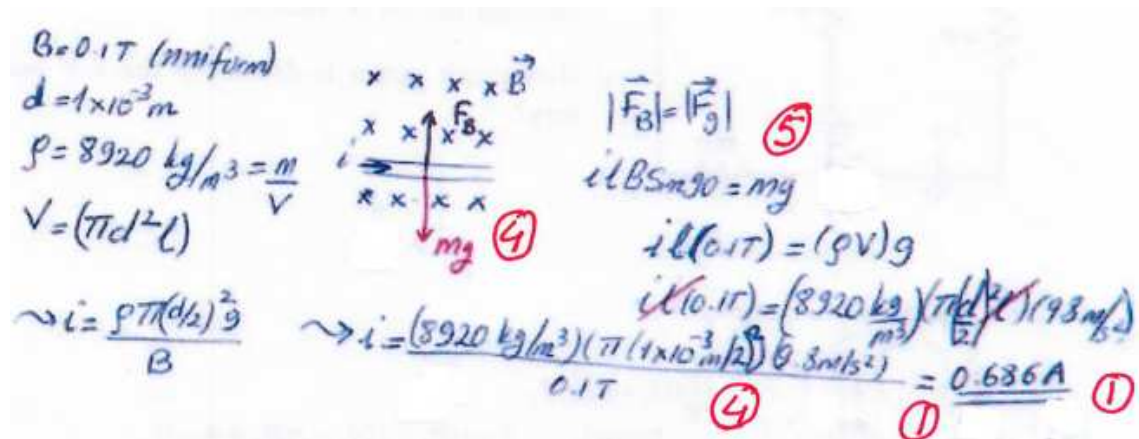 B=0.1T (uniform)
d=1x10⁻³m
ρ=8920 kg/m³ = m/V
V=(πd²l)
x x x x B⃗
x x x x
F_B
i
x x x x
mg
④
|F⃗_B|=|F⃗_g|
⑤
ilBSin90=mg
il(0.1T)=(ρV)g
il(0.1T)=(8920 kg/m³)(π(d/2)²l)(9.8m/s²)
⇝ i= ρπ(d/2)²g / B
⇝ i= (8920 kg/m³)(π(1x10⁻³m/2)²)(9.8m/s²) / 0.1T = 0.686A
④ ① ①